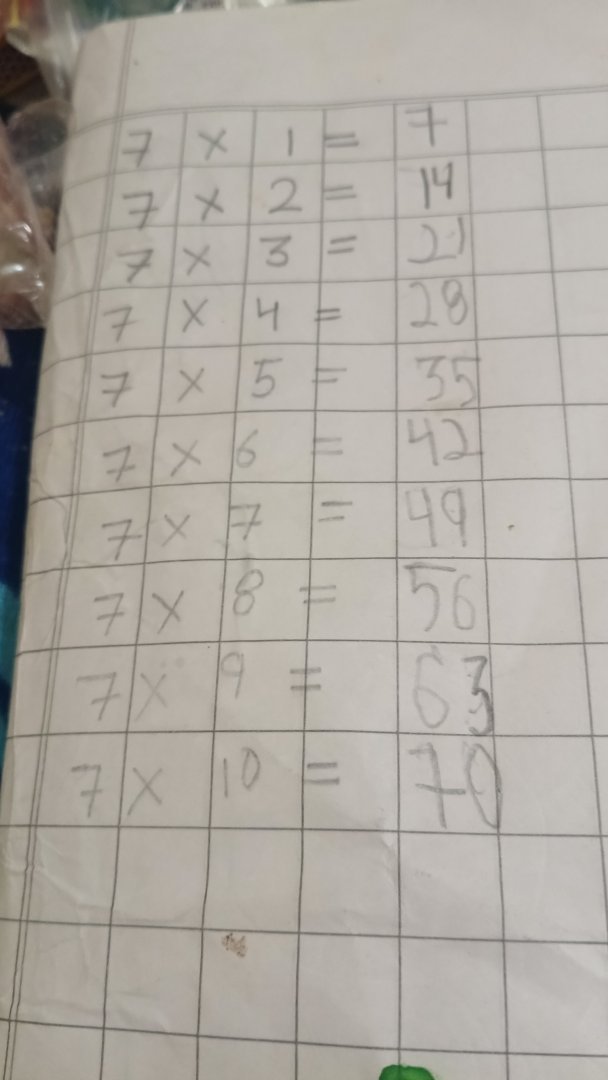 7 × 1 = 7
7 × 2 = 14
7 × 3 = 21
7 × 4 = 28
7 × 5 = 35
7 × 6 = 42
7 × 7 = 49
7 × 8 = 56
7 × 9 = 63
7 × 10 = 70